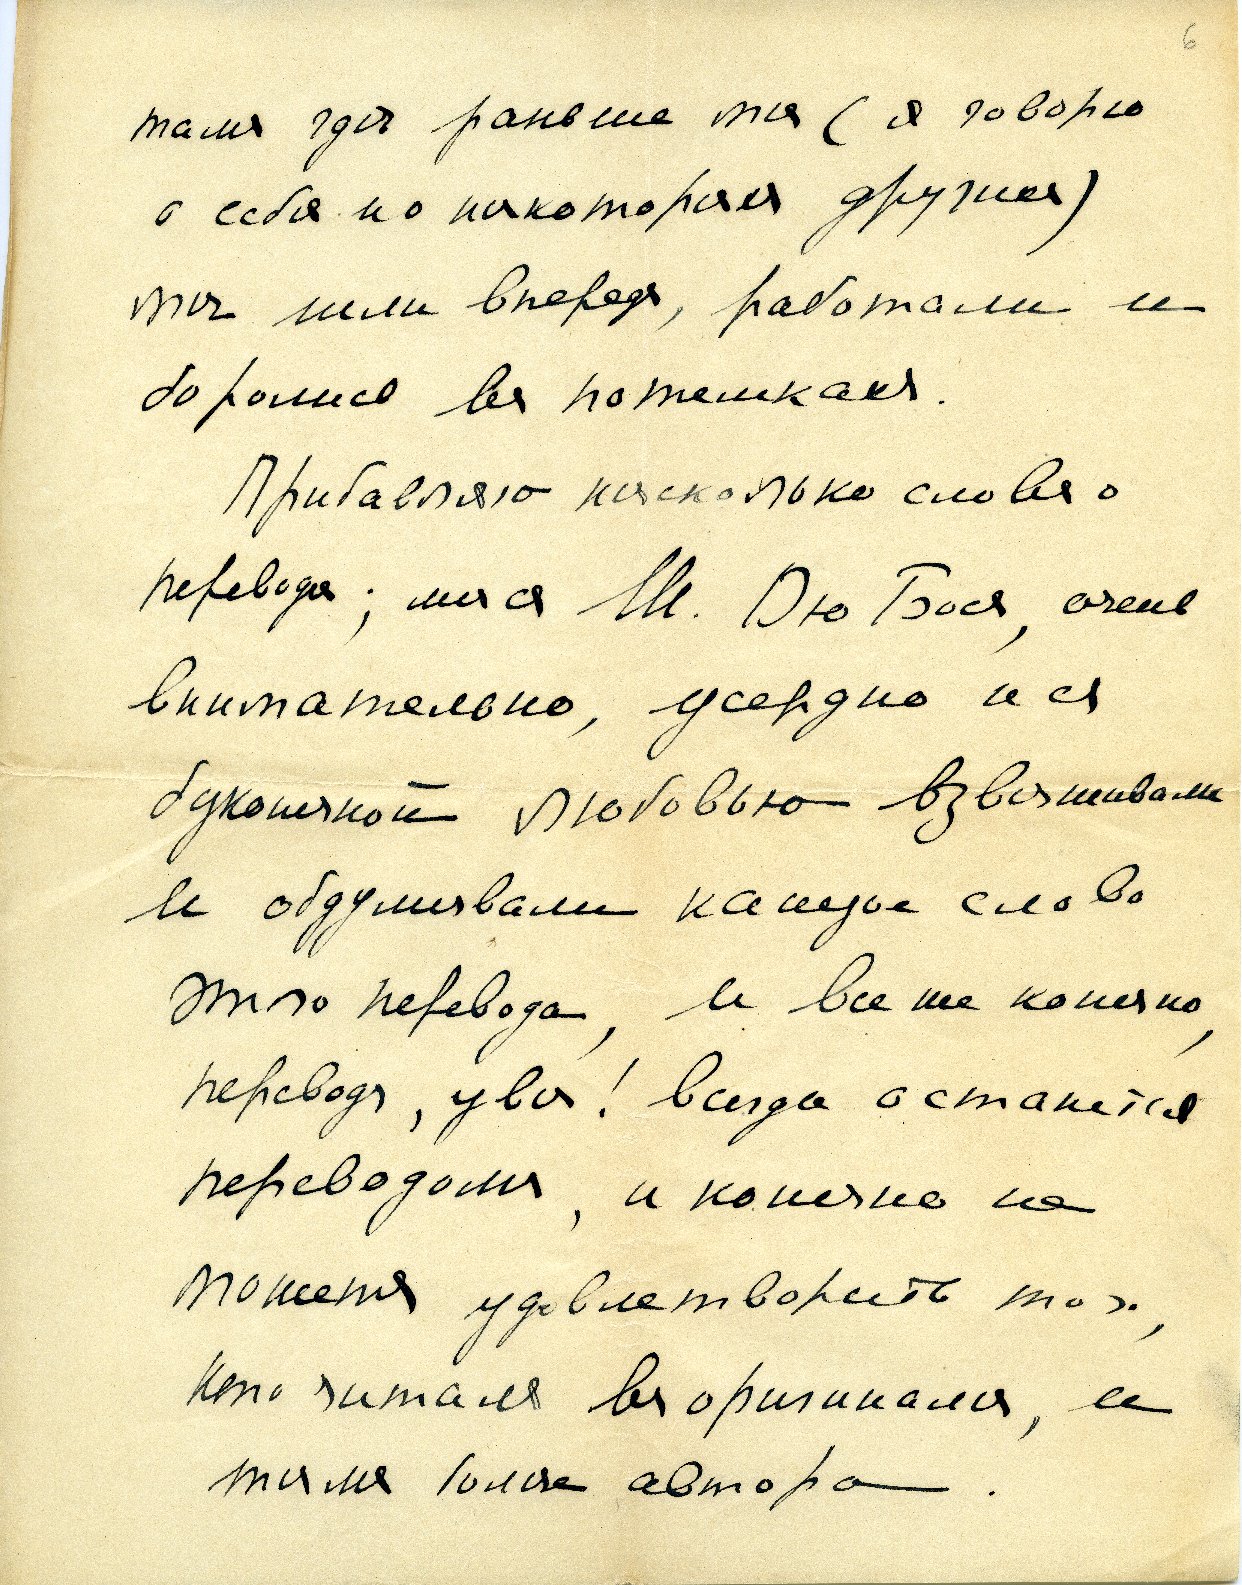 6
тамъ гдѣ раньше мы (я говорю
о себѣ и о нѣкоторыхъ другихъ)
мы шли впередъ, работали и
боролись въ потемкахъ.
Прибавляю нѣсколько словъ о
переводѣ; мы съ М. Дю Босъ, очень
внимательно, усердно и съ
буконечной любовью взвѣшивали
и обдумывали каждое слово
этого перевода, и все же конечно,
переводъ, увы! всегда останется
переводомъ, и конечно не
можетъ удовлетворить того,
кто читалъ въ оригиналѣ, и
тѣмъ болѣе автора.